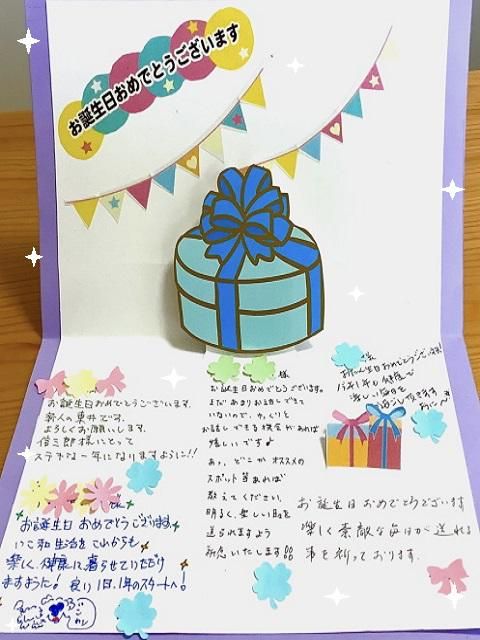 お誕生日おめでとうございます
お誕生日おめでとうございます。
新人の東井です。
よろしくお願いします。
信三郎様にとって
ステキな一年になりますように!!
様
お誕生日おめでとうございます。
まだあまりお話しできて
いないので、ゆっくりと
お話しできる機会があれば
嬉しいです♪
あっ、どこかオススメの
スポット等あれば
教えてください。
明るく、楽しい時を
送られますよう
お祈りいたします!!
様
お誕生日おめでとうございます
楽しい毎日を
お誕生日おめでとうございます
楽しく素敵な毎日が送れる
事を祈っております。
お誕生日おめでとうございます。
生活をこれからも
楽しく、健康に暮らせていただけ
ますように! 良い1日、1年のスタートへ!